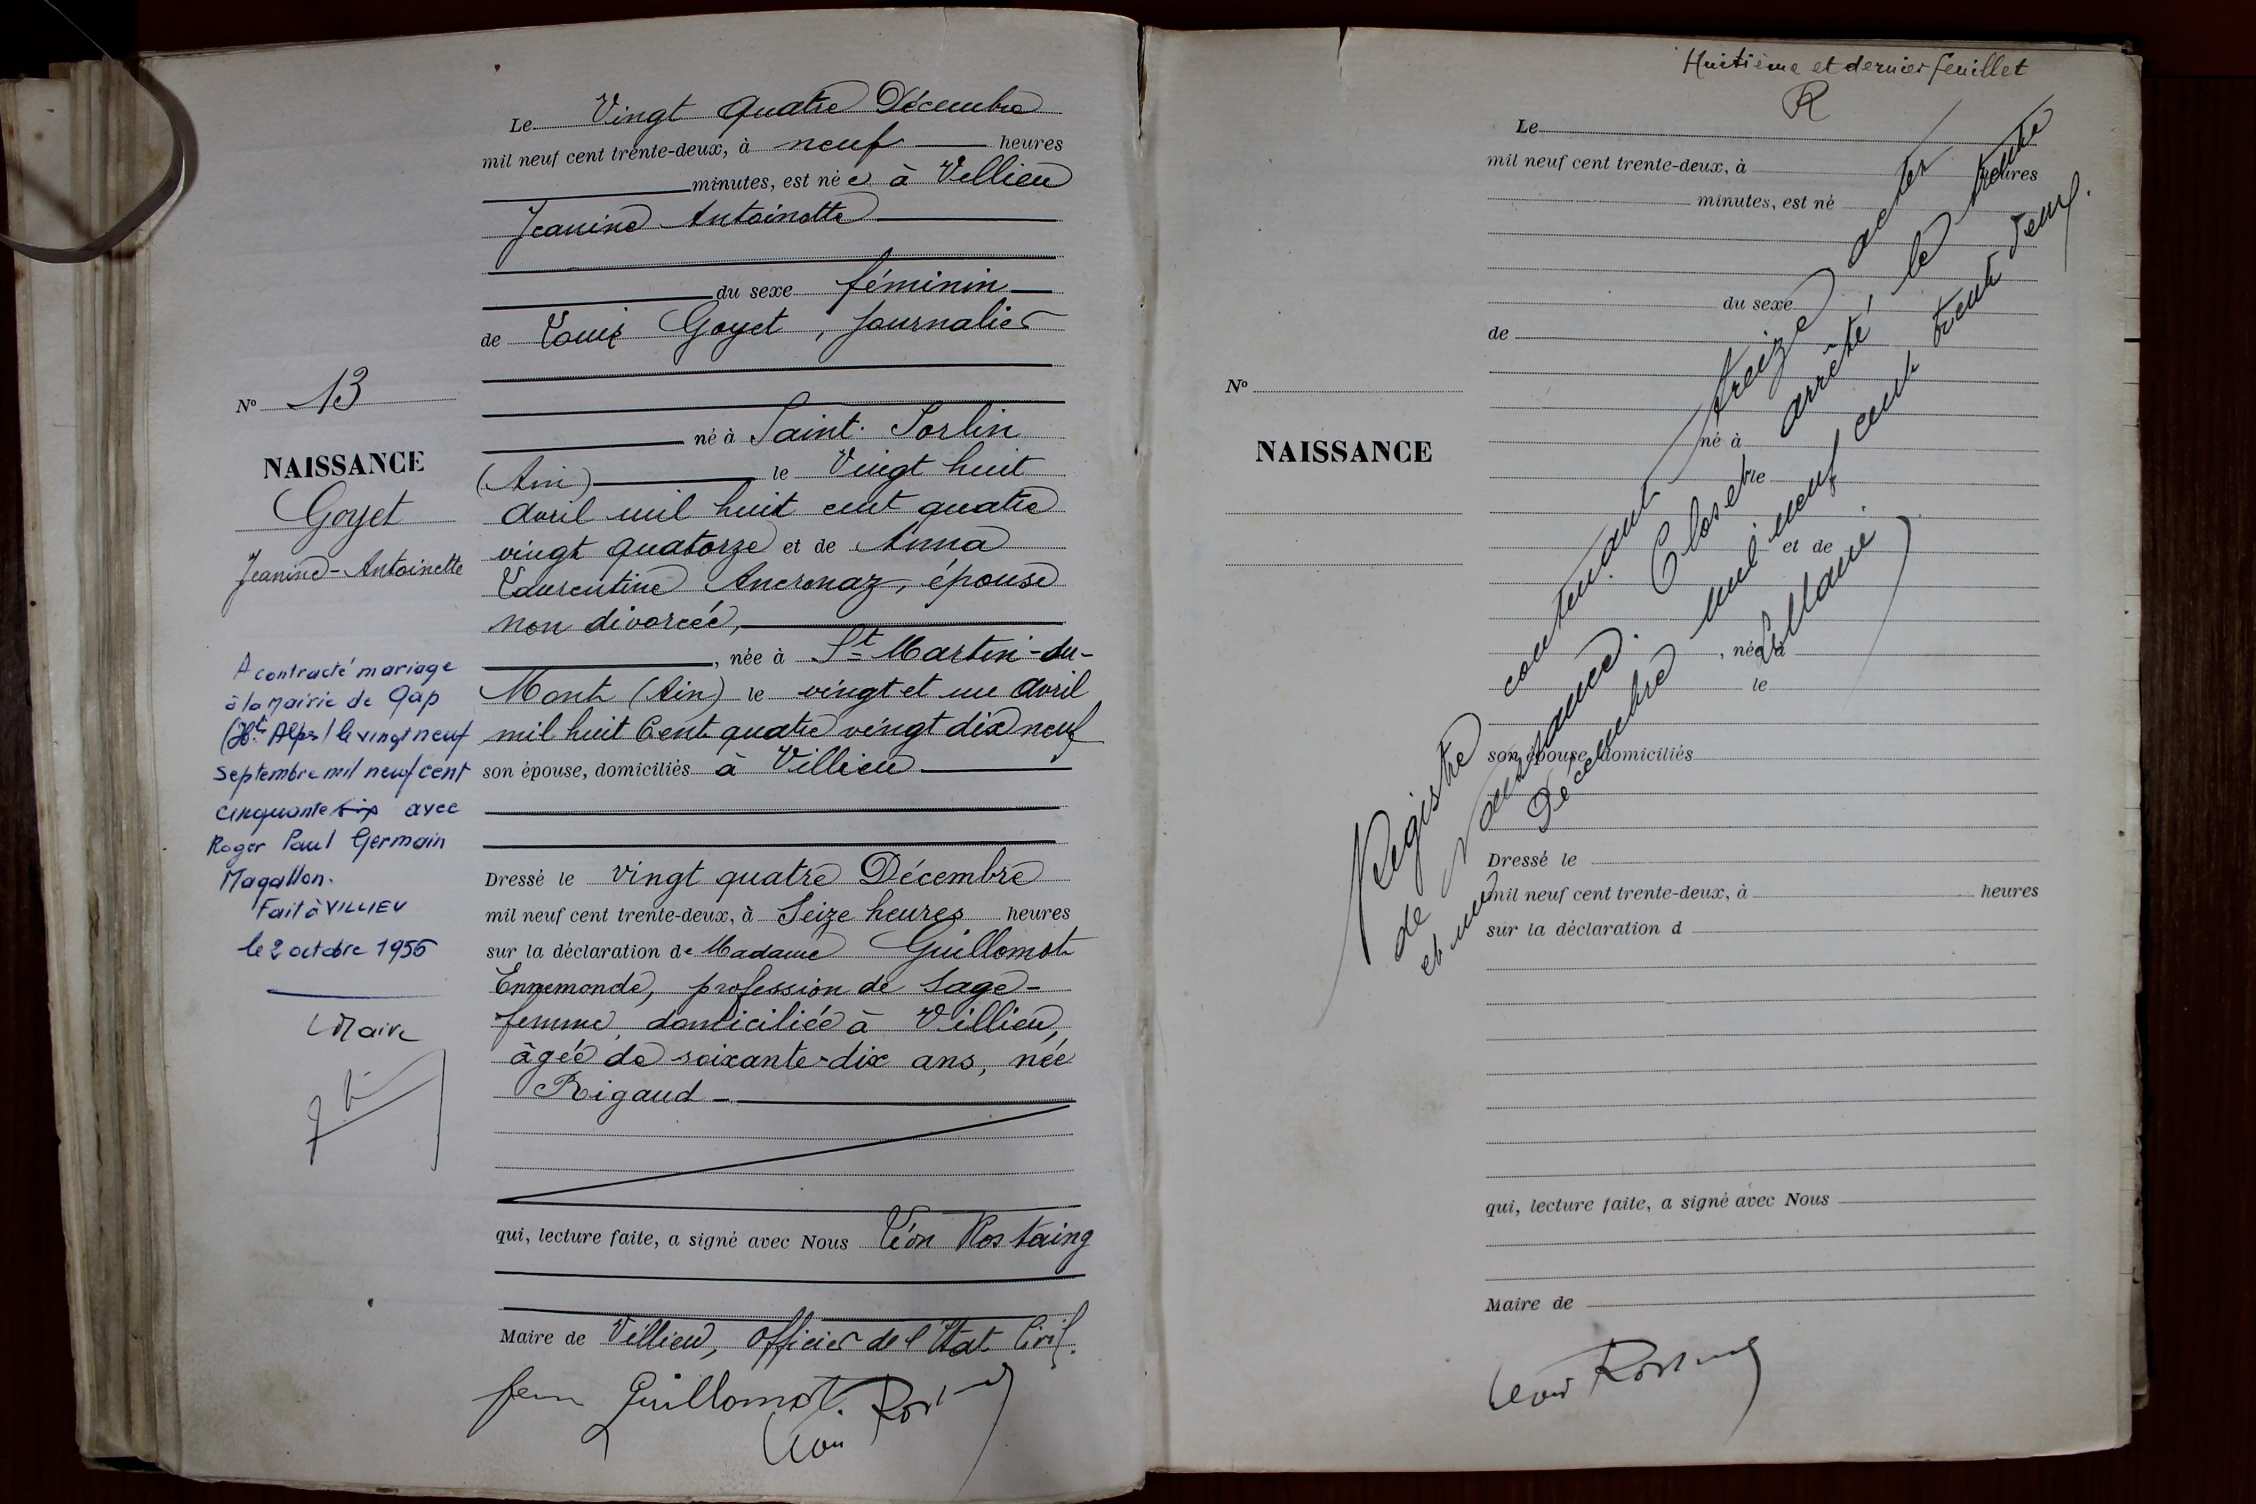 Le Vingt quatre Décembre
mil neuf cent trente-deux, à neuf heures
minutes, est née à Villieu
Jeanine Antoinette
du sexe féminin
de Louis Goyet, Journalier
né à Saint-Sorlin
(Ain) le Vingt huit
Avril mil huit cent quatre
vingt quatorze et de Anna
Laurentine Ancronaz, épouse
non divorcée,
, née à St Martin-du-
Mont (Ain) le vingt et un Avril
mil huit Cent quatre vingt dix neuf
son épouse, domiciliés à Villieu
Dressé le vingt quatre Décembre
mil neuf cent trente-deux, à Seize heures heures
sur la déclaration de Madame Guillomot
Ennemonde, profession de Sage-
femme, domiciliée à Villieu,
âgée de soixante-dix ans, née
Rigaud
qui, lecture faite, a signé avec Nous Léon Rostaing
Maire de Villieu, Officier de l'Etat Civil.
Guillomot.
Léon
No 13
NAISSANCE
Goyet
Jeanine-Antoinette
A contracté mariage
à la Mairie de Gap
(Htes Alpes) le vingt neuf
Septembre mil neuf cent
cinquante six avec
Roger Paul Germain
Magallon.
Fait à VILLIEU
le 2 octobre 1956
L Maire
Huitième et dernier feuillet
R
Le
mil neuf cent trente-deux, à heures
minutes, est né
du sexe
de
No
NAISSANCE
né à
le
et de
, née à
le
son épouse, domiciliés
Dressé le
mil neuf cent trente-deux, à heures
sur la déclaration d
qui, lecture faite, a signé avec Nous
Maire de
Registre contenant treize actes
de Naissance. Clos et arrêté le trente
et un Décembre mil neuf cent trente deux.
Le Maire
Léon Rostaing